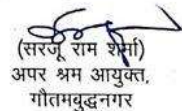 (सरजू राम शर्मा)
अपर श्रम आयुक्त,
गौतमबुद्धनगर